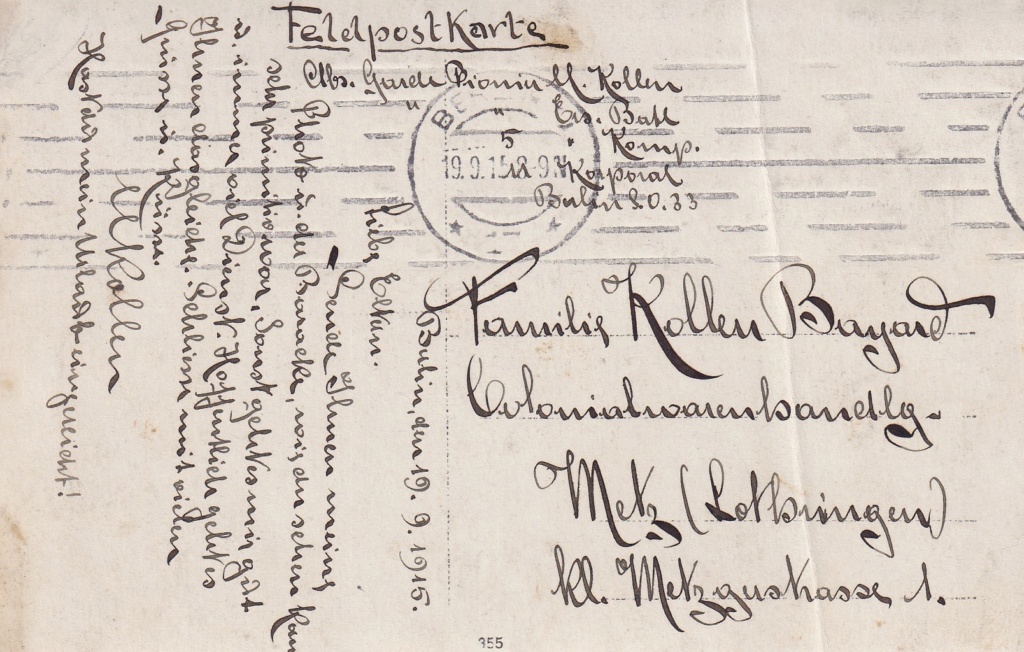 Feldpostkarte
Abs. Garde Pionier M. Kollen
" " Ers. Batl
5 " Komp.
Korporal
Berlin S.O. 33
BE
19.9.15 8-9N
Familie Kollen Bayard
Colonialwarenhandlg.
Metz (Lothringen)
kl. Metzgerstrasse 1.
Berlin, den 19. 9. 1915.
Liebe Eltern.
Sende Ihnen meine
Photo u. der Baracke, wie du sehen kan
sehr primitiv war, Sonst geht es mir gut
u. immer viel Dienst. Hoffentlich geht es
Ihnen desgleiche. Schliesse mit vielen
Grüsse u. Küsse.
M Kollen
Hast du mein Urlaub eingereicht!
355